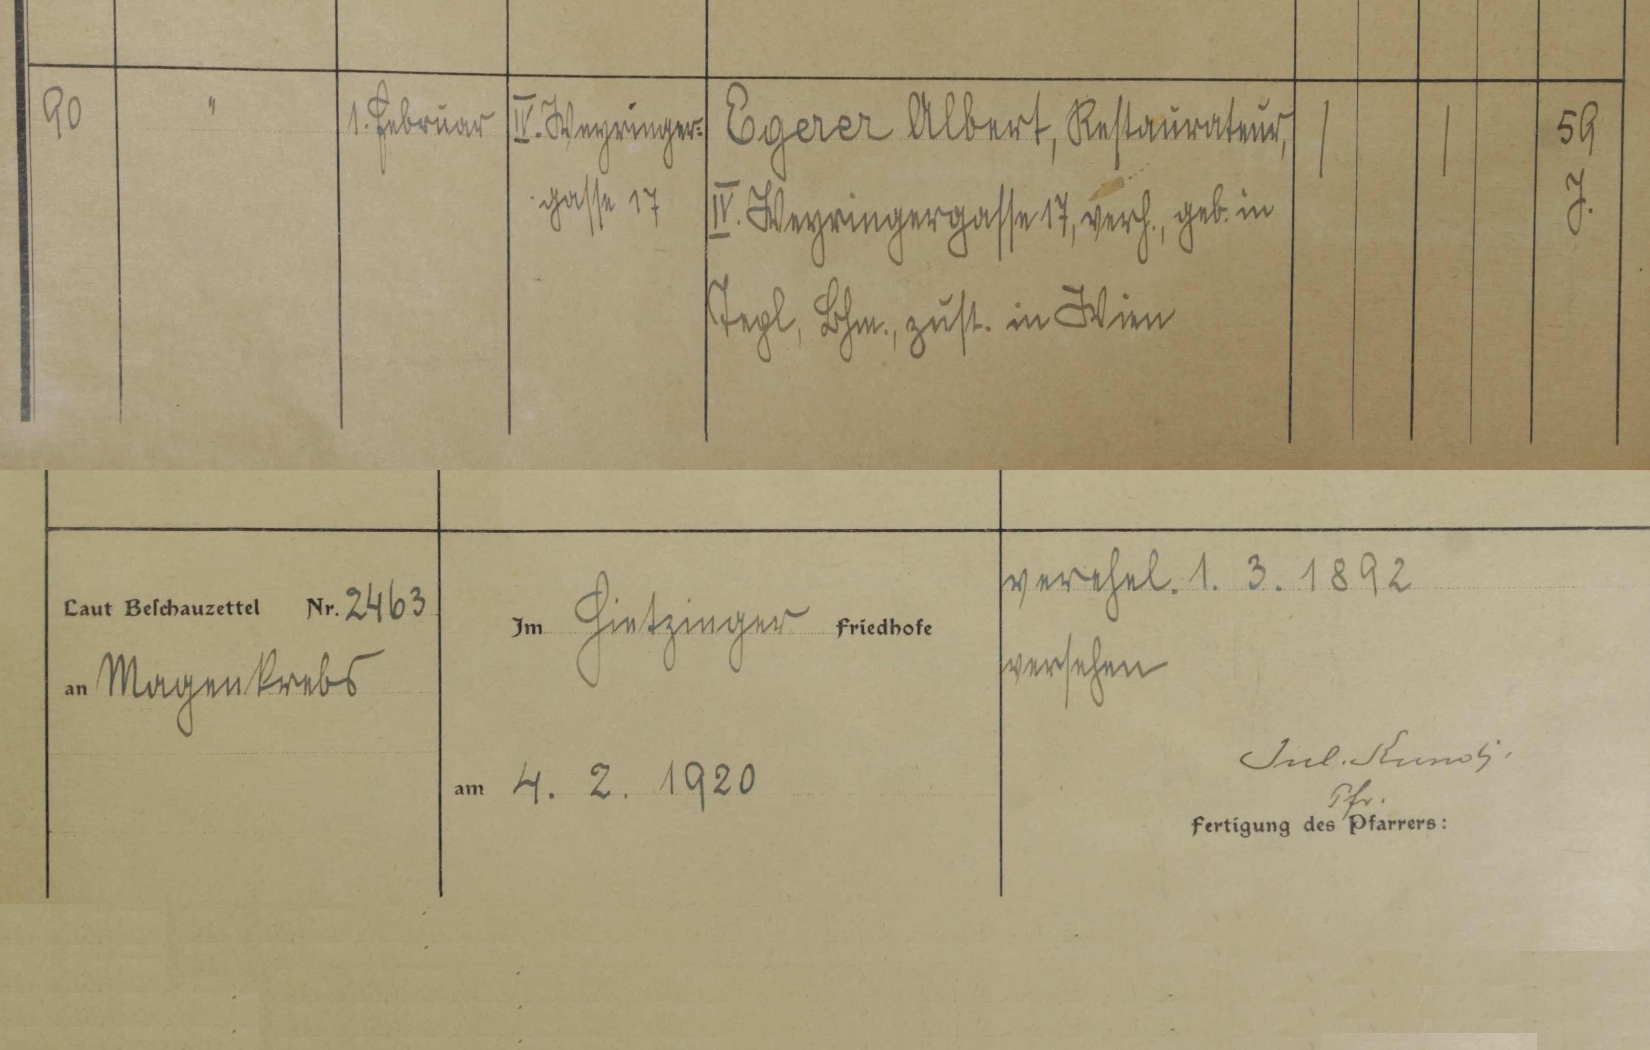 90 " 1. Februar IV. Weyringer= Egerer Albert, Restaurateur, | | 59
gasse 17 IV. Weyringergasse 17, verh., geb. in J.
Tepl, Bhm., zust. in Wien
verehel. 1. 3. 1892
Laut Beschauzettel Nr. 2463 Im Hietzinger Friedhofe
an Magenkrebs versehen
am 4. 2. 1920
Jul. Kundi
Pfr.
Fertigung des Pfarrers: